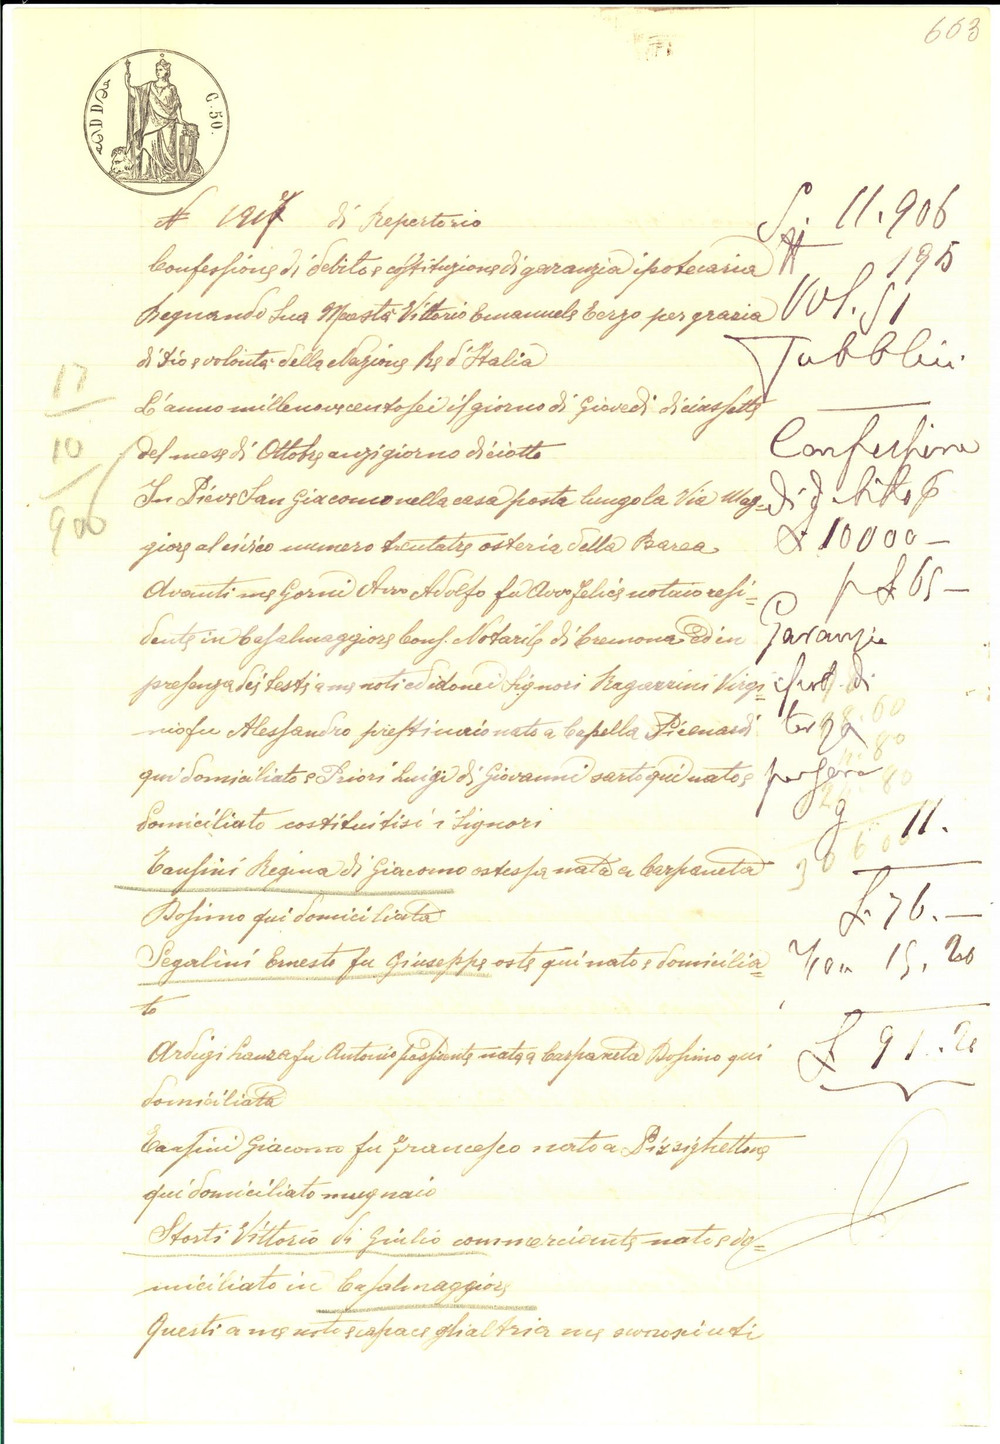 663
C. 50.
N 1217 di Repertorio
Confessione di debito e costituzione di garanzia ipotecaria
Regnando Sua Maestà Vittorio Emanuele Terzo per grazia
di Dio e volontà della Nazione Re d'Italia
L'anno millenovecentosei il giorno di Giovedì diciassette
del mese di Ottobre anzi giorno diciotto
In Pieve San Giacomo nella casa posta lungo la Via Mag=
giore al civico numero trentatre osteria della Barca
Avanti me Gorni Avv. Adolfo fu Avv. Felice notaio resi=
dente in Casalmaggiore Cons. Notarile di Cremona ed in
presenza dei testi a me noti ed idonei Signori Ragazzini Virgi=
nio fu Alessandro prestinaio nato a Capella Picenardi
qui domiciliato e Priori Luigi di Giovanni sarto qui nato e
domiciliato costituitisi i Signori
Tansini Regina di Giacomo ostessa nata a Carpaneta
Dosimo qui domiciliata
Segalini Ernesto fu Giuseppe oste qui nato e domicilia=
to
Ardigi fu Antonio possidente nata a Carpaneta Dosimo qui
domiciliata
Tansini Giacomo fu Francesco nato a Pizzighettone
qui domiciliato mugnaio
Storti Vittorio di Giulio commerciante nato e do=
miciliato in Casalmaggiore
Questi a me noto e capace gli altri a me sconosciuti
17
10
906
11.906
195
Vol. 51
Pubblici
Confessione
di debito f
£ 10000 —
p £ 65 —
Garanzia
ipot. di
terza
persona
11.
£ 76. —
15.20
£ 91.20